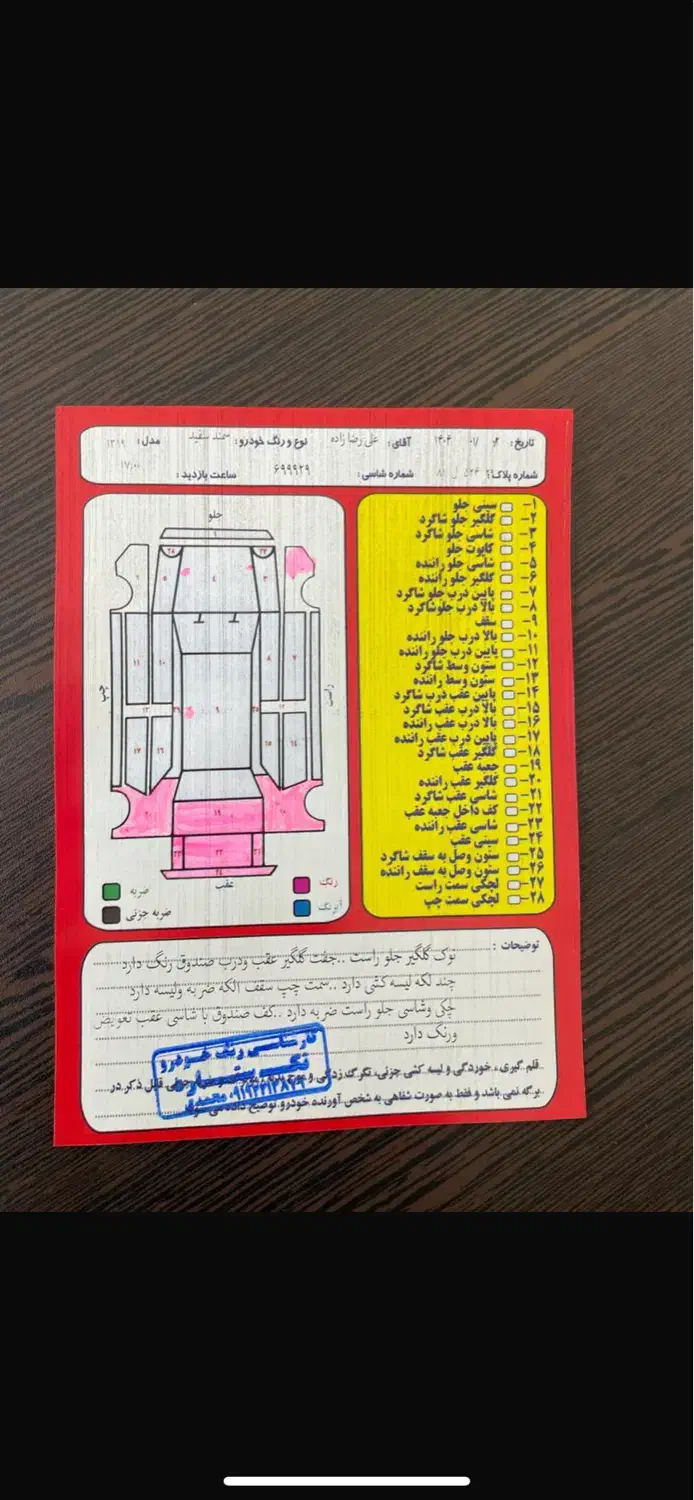 تاریخ: ۰۱/ ۱۴۰۴ آقای: علی رضا زاده نوع و رنگ خودرو: سمند سفید مدل: ۱۳۸۹
شماره پلاک: ل ۸۱ شماره شاسی: ۶۹۹۹۲۹ ساعت بازدید: ۱۷:۰۰
جلو
راست
چپ
عقب
رنگ
ضربه
آبرنگ
ضربه جزئی
۱- سینی جلو
۲- گلگیر جلو شاگرد
۳- شاسی جلو شاگرد
۴- کاپوت جلو
۵- شاسی جلو راننده
۶- گلگیر جلو راننده
۷- پایین درب جلو شاگرد
۸- بالا درب جلو شاگرد
۹- سقف
۱۰- بالا درب جلو راننده
۱۱- پایین درب جلو راننده
۱۲- ستون وسط شاگرد
۱۳- ستون وسط راننده
۱۴- پایین عقب درب شاگرد
۱۵- بالا درب عقب شاگرد
۱۶- بالا درب عقب راننده
۱۷- پایین درب عقب راننده
۱۸- گلگیر عقب شاگرد
۱۹- جعبه عقب
۲۰- گلگیر عقب راننده
۲۱- شاسی عقب شاگرد
۲۲- کف داخل جعبه عقب
۲۳- شاسی عقب راننده
۲۴- سینی عقب
۲۵- ستون وصل به سقف شاگرد
۲۶- ستون وصل به سقف راننده
۲۷- لچکی سمت راست
۲۸- لچکی سمت چپ
توضیحات:
نوک گلگیر جلو راست ..جفت گلگیر عقب ودرب صندوق رنگ دارد
چند لکه لیسه کشی دارد ..سمت چپ سقف ۱لکه ضربه ولیسه دارد
چکی وشاسی جلو راست ضربه دارد ..کف صندوق با شاسی عقب تعویض
ورنگ دارد
کارشناسی رنگ خودرو
قلم گیری، خوردگی و لیسه کشی جزئی، تگرگ زدگی و قابل ذکر در
برگه نمی باشد و فقط به صورت شفاهی به شخص آورنده خودرو توضیح داده می شود